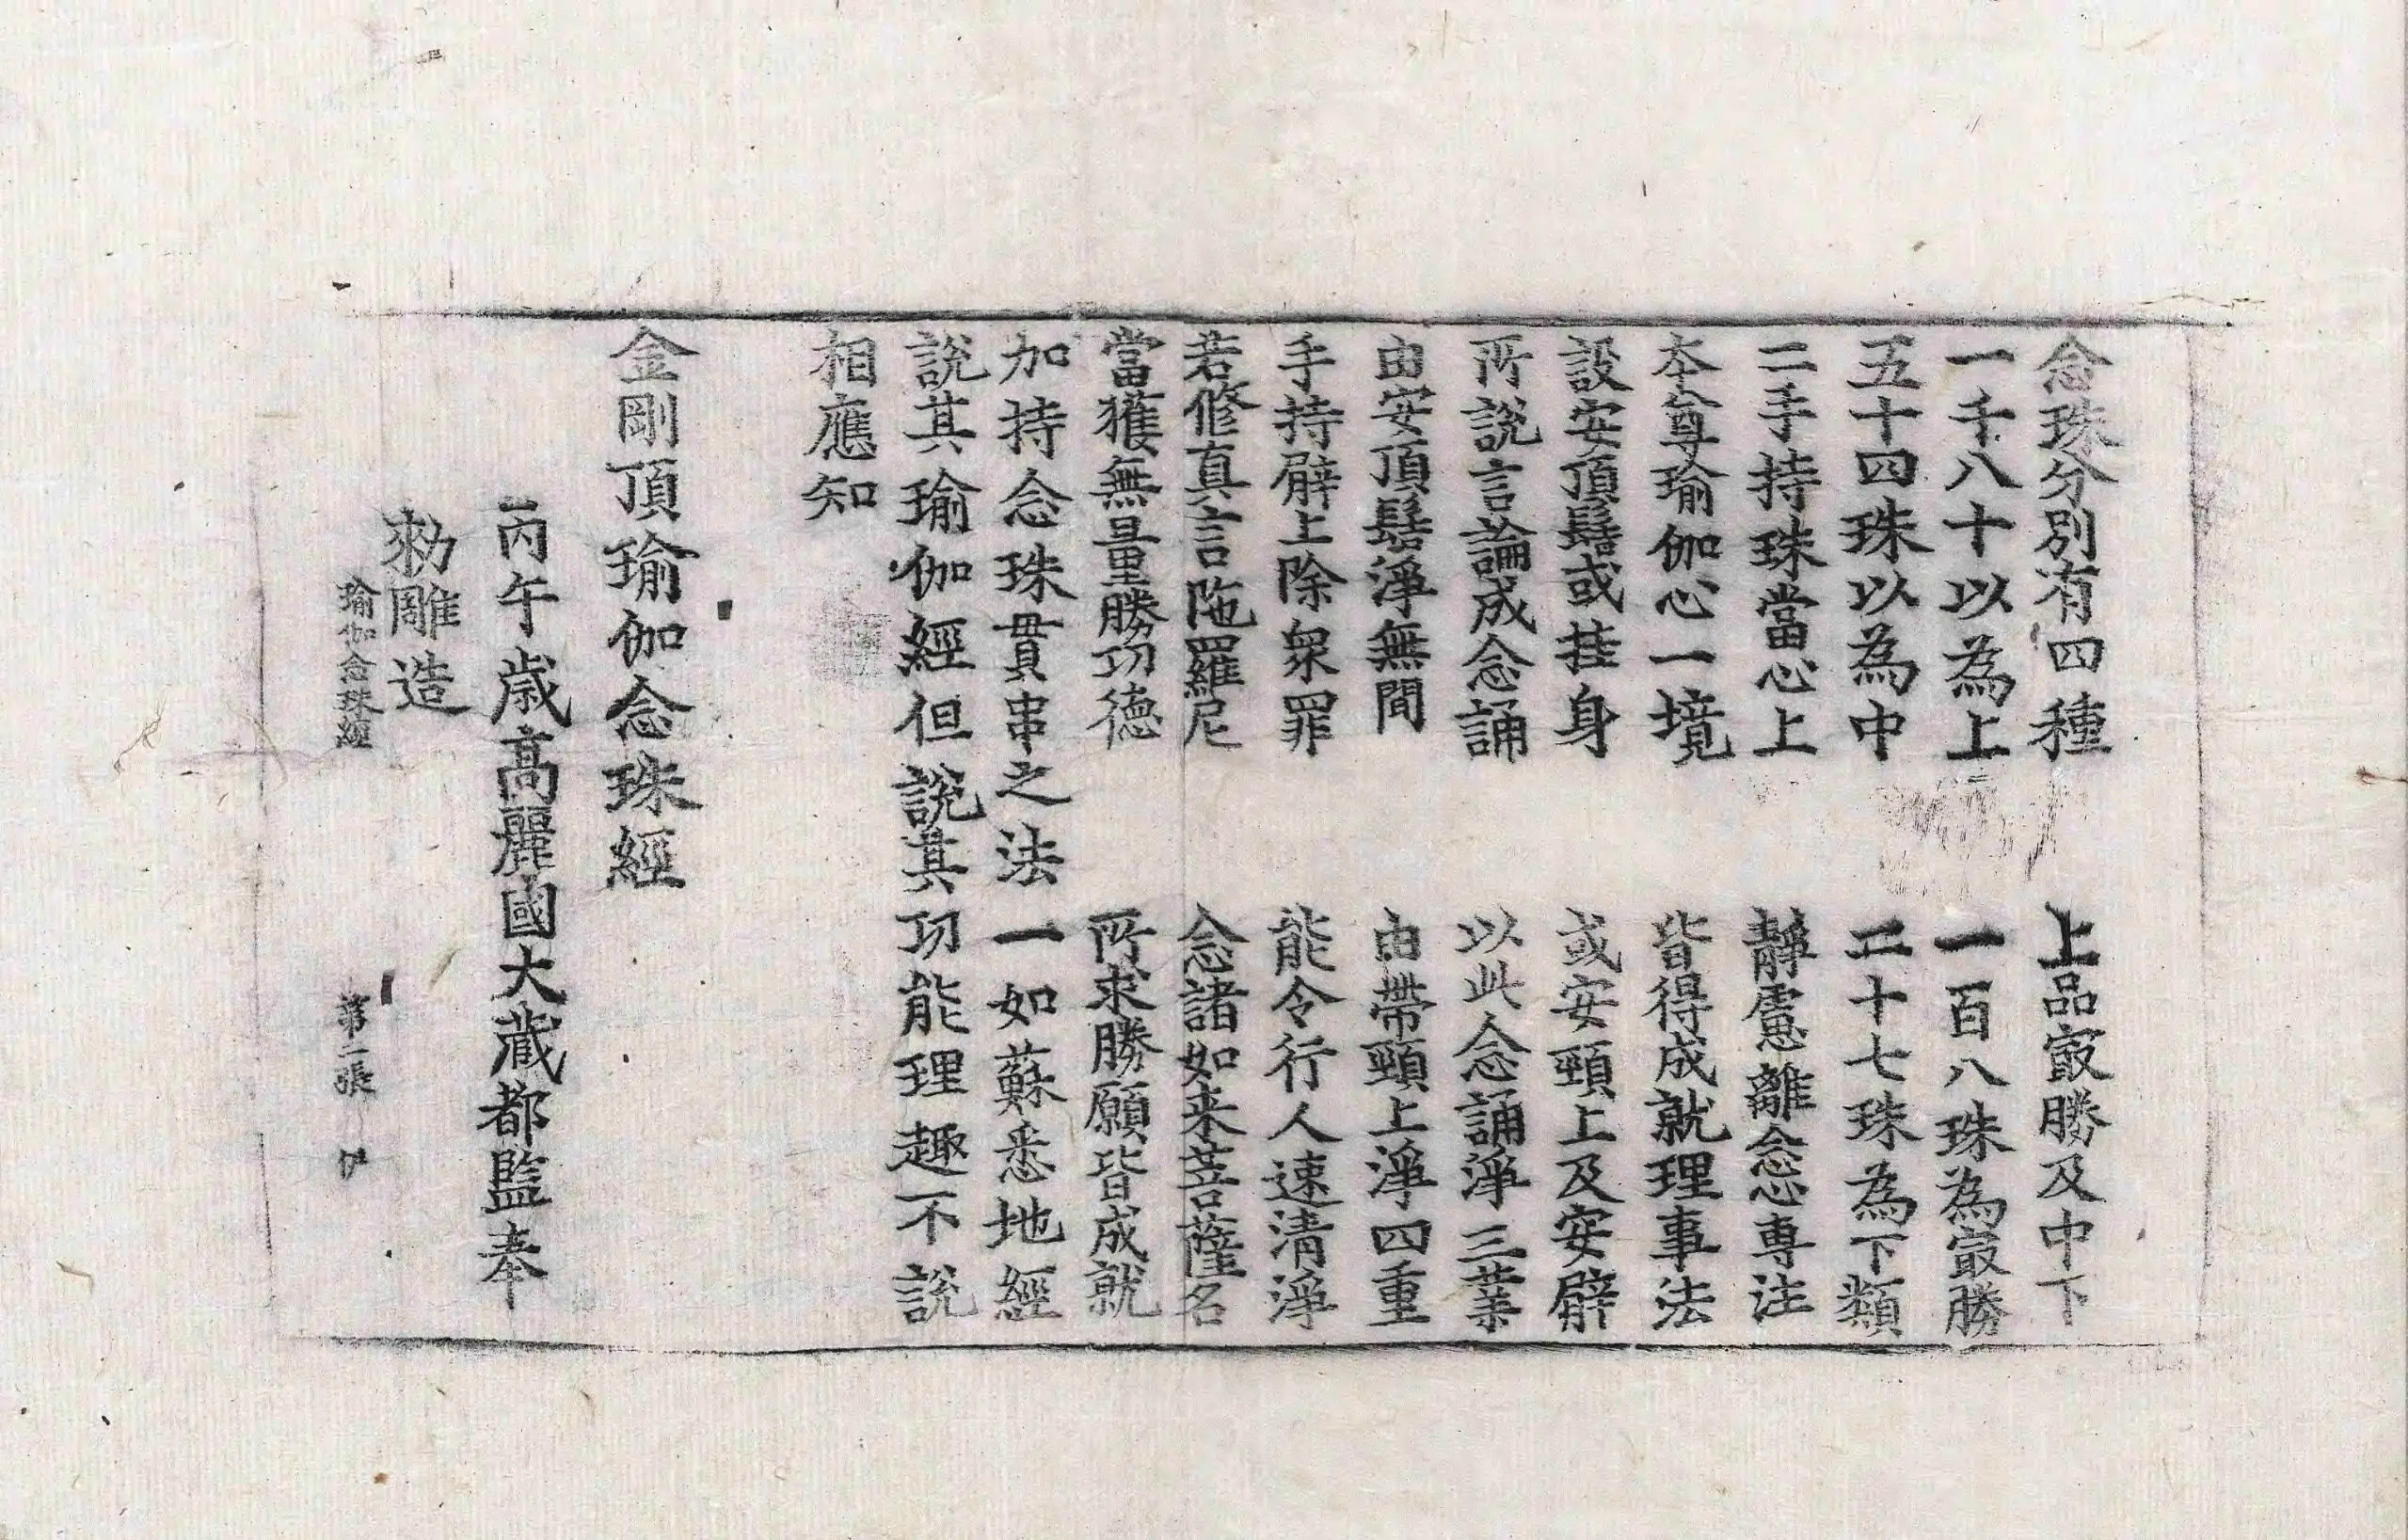 念珠分別有四種　上品㝡勝及中下
一千八十以為上　一百八珠為㝡勝
五十四珠以為中　二十七珠為下類
二手持珠當心上　靜慮離念心專注
本尊瑜伽心一境　皆得成就理事法
設安頂髻或挂身　或安頸上及安臂
所說言論成念誦　以此念誦淨三業
由安頂髻淨無間　由帶頸上淨四重
手持臂上除衆罪　能令行人速清淨
若修真言陁羅尼　念諸如来菩薩名
當獲無量勝功德　所求勝願皆成就
加持念珠貫串之法一如蘇悉地經
說其瑜伽經但說其功能理趣不說
相應知
金剛頂瑜伽念珠經
丙午歲高麗國大藏都監奉
勑雕造
瑜伽念珠經　第二張　伊